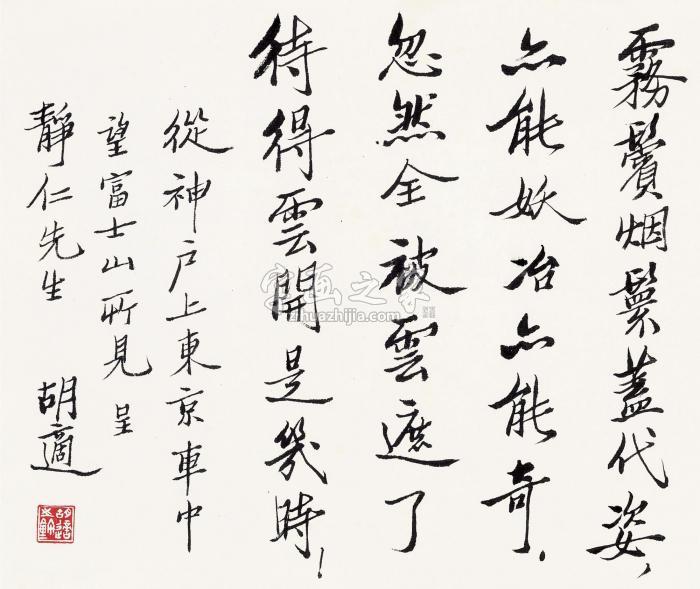 霧鬢烟鬟蓋代姿，
亦能妖冶亦能奇．
忽然全被雲遮了
待得雲開是幾時！
從神戶上東京車中
望富士山所見 呈
靜仁先生 胡適
字画之家
zihuazhijia.com